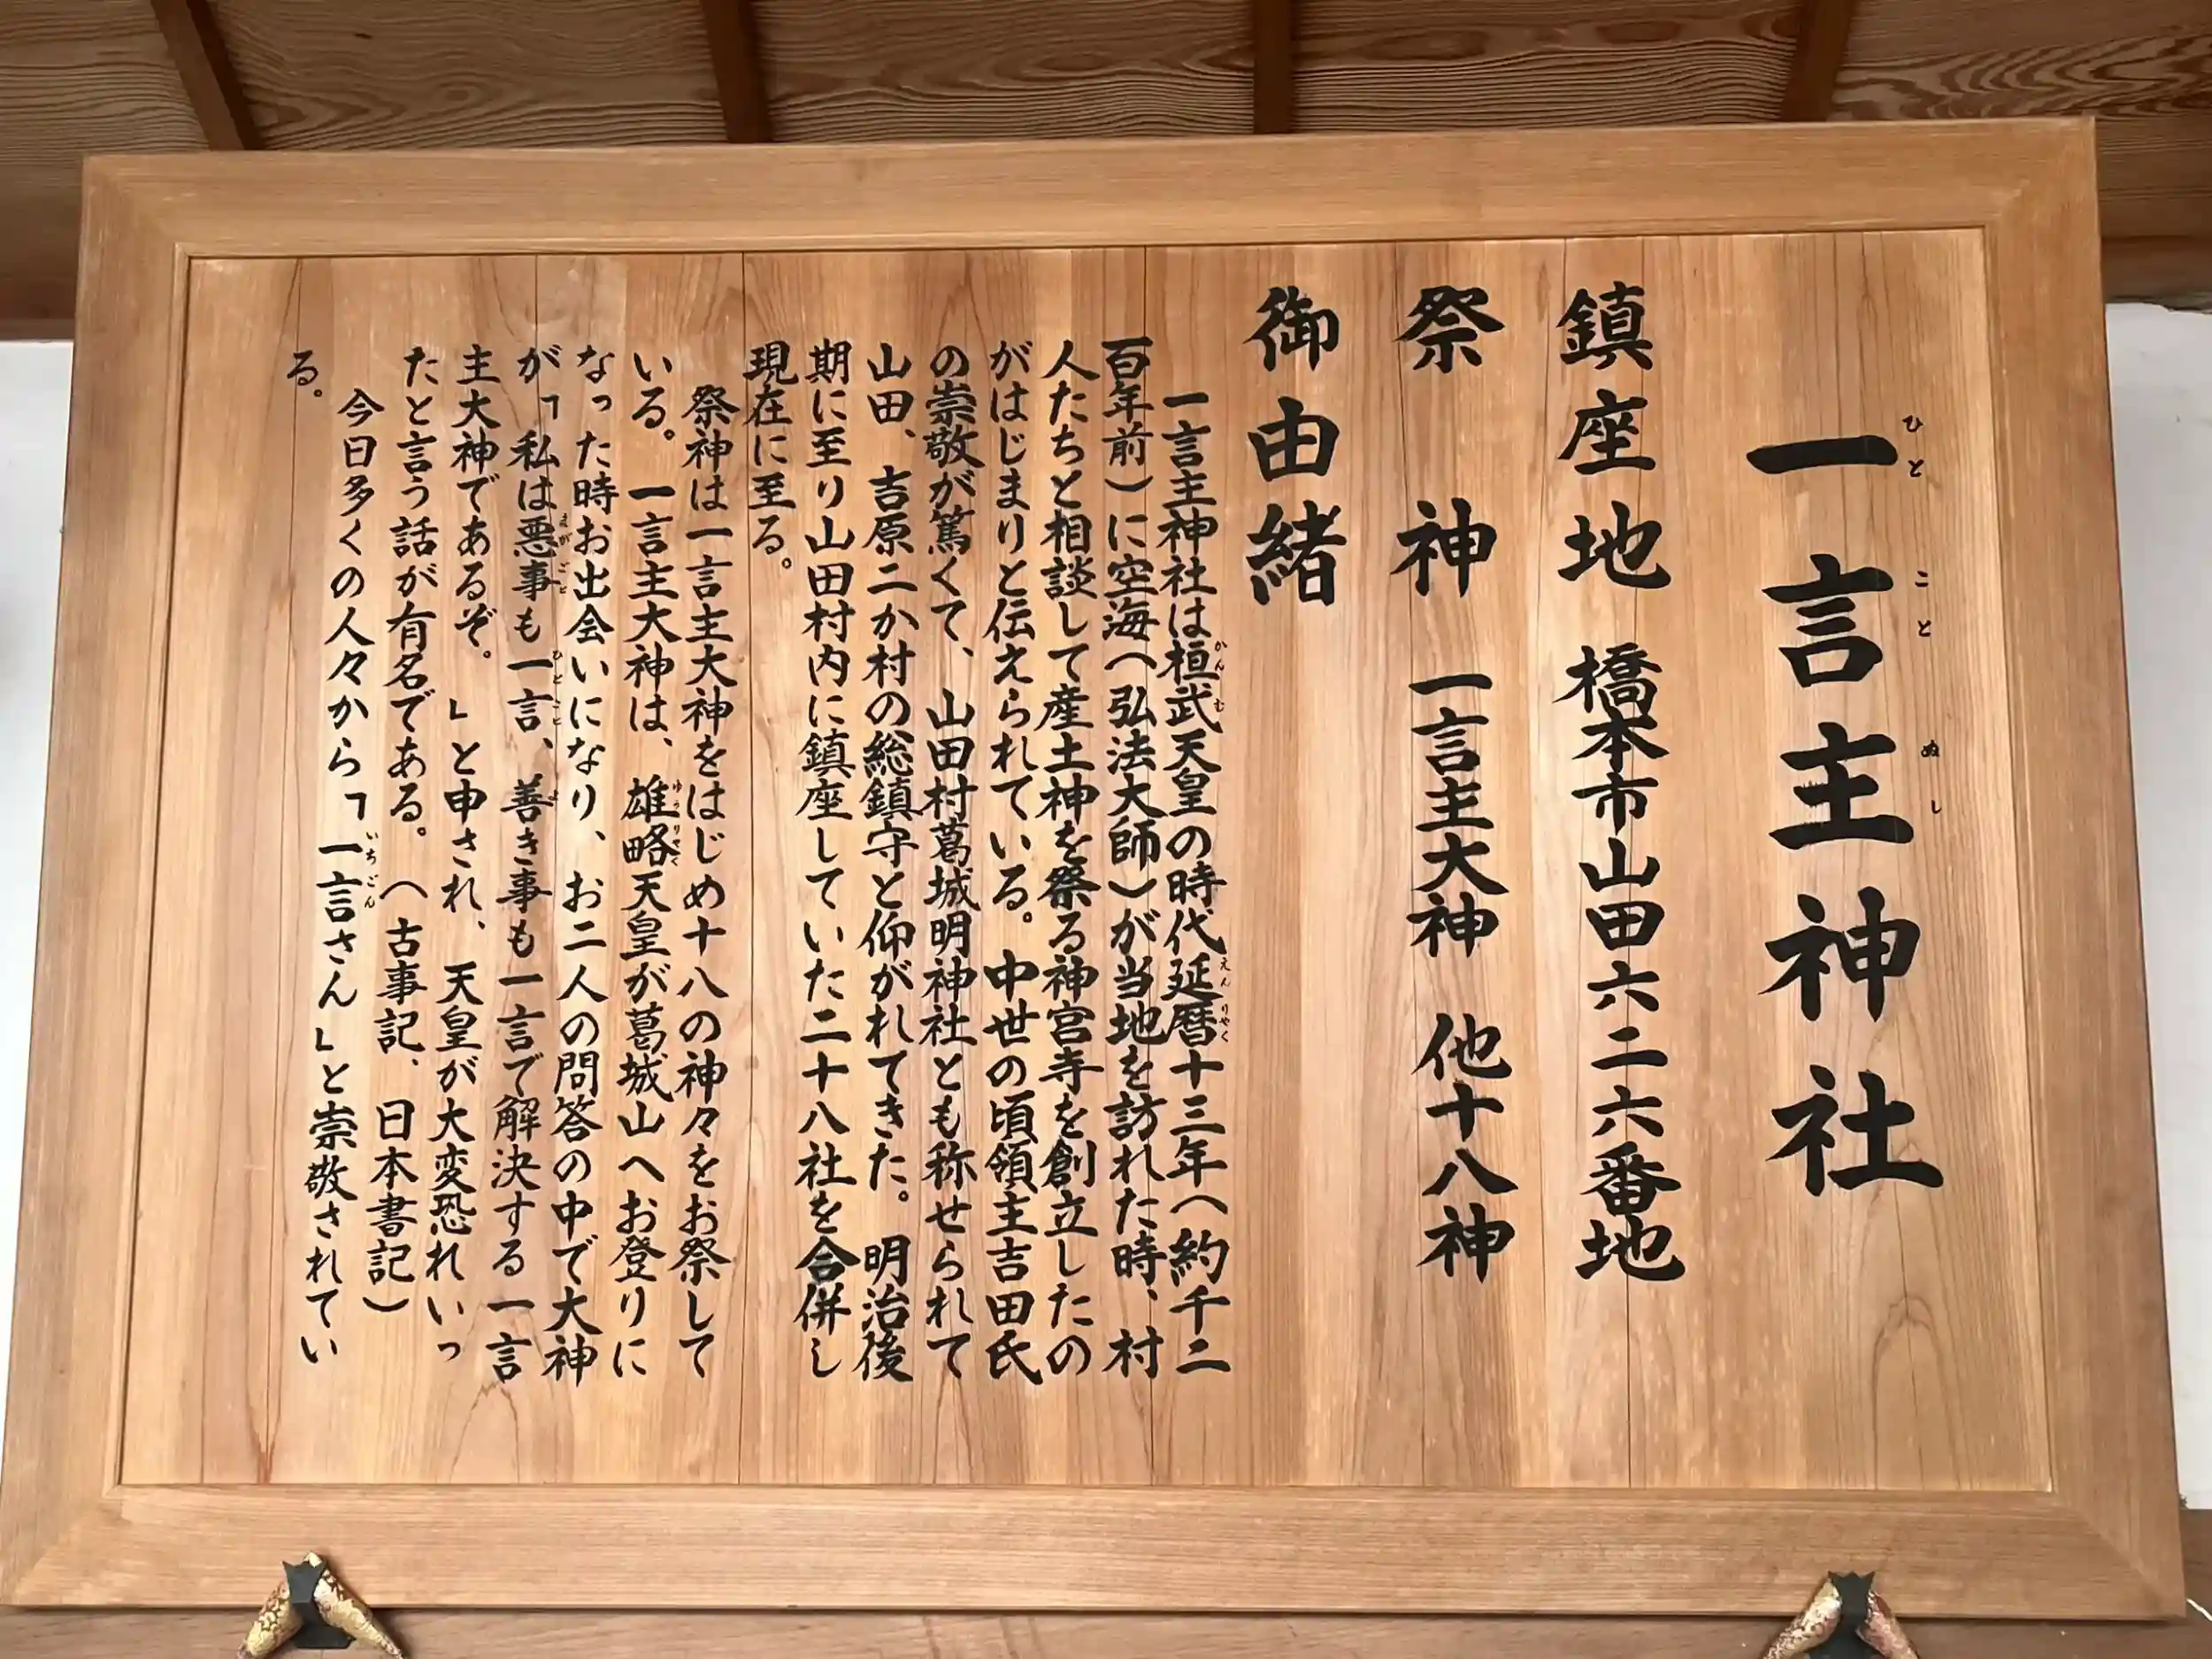 一言主神社
ひとことぬし
鎮座地 橋本市山田六二六番地
祭神 一言主大神 他十八神
御由緒
一言主神社は桓武天皇の時代延暦十三年(約千二
かんむ えんりやく
百年前)に空海(弘法大師)が当地を訪れた時、村
人たちと相談して産土神を祭る神宮寺を創立したの
がはじまりと伝えられている。中世の頃領主吉田氏
の崇敬が篤くて、山田村葛城明神社とも称せられて
山田、吉原二か村の総鎮守と仰がれてきた。明治後
期に至り山田村内に鎮座していた二十八社を合併し
現在に至る。
祭神は一言主大神をはじめ十八の神々をお祭して
いる。一言主大神は、雄略天皇が葛城山へお登りに
ゆうりやく
なった時お出会いになり、お二人の問答の中で大神
が「私は悪事も一言、善き事も一言で解決する一言
まがごと ひとこと よ
主大神であるぞ。」と申され、天皇が大変恐れいっ
たと言う話が有名である。(古事記、日本書記)
今日多くの人々から「一言さん」と崇敬されてい
いちごん
る。